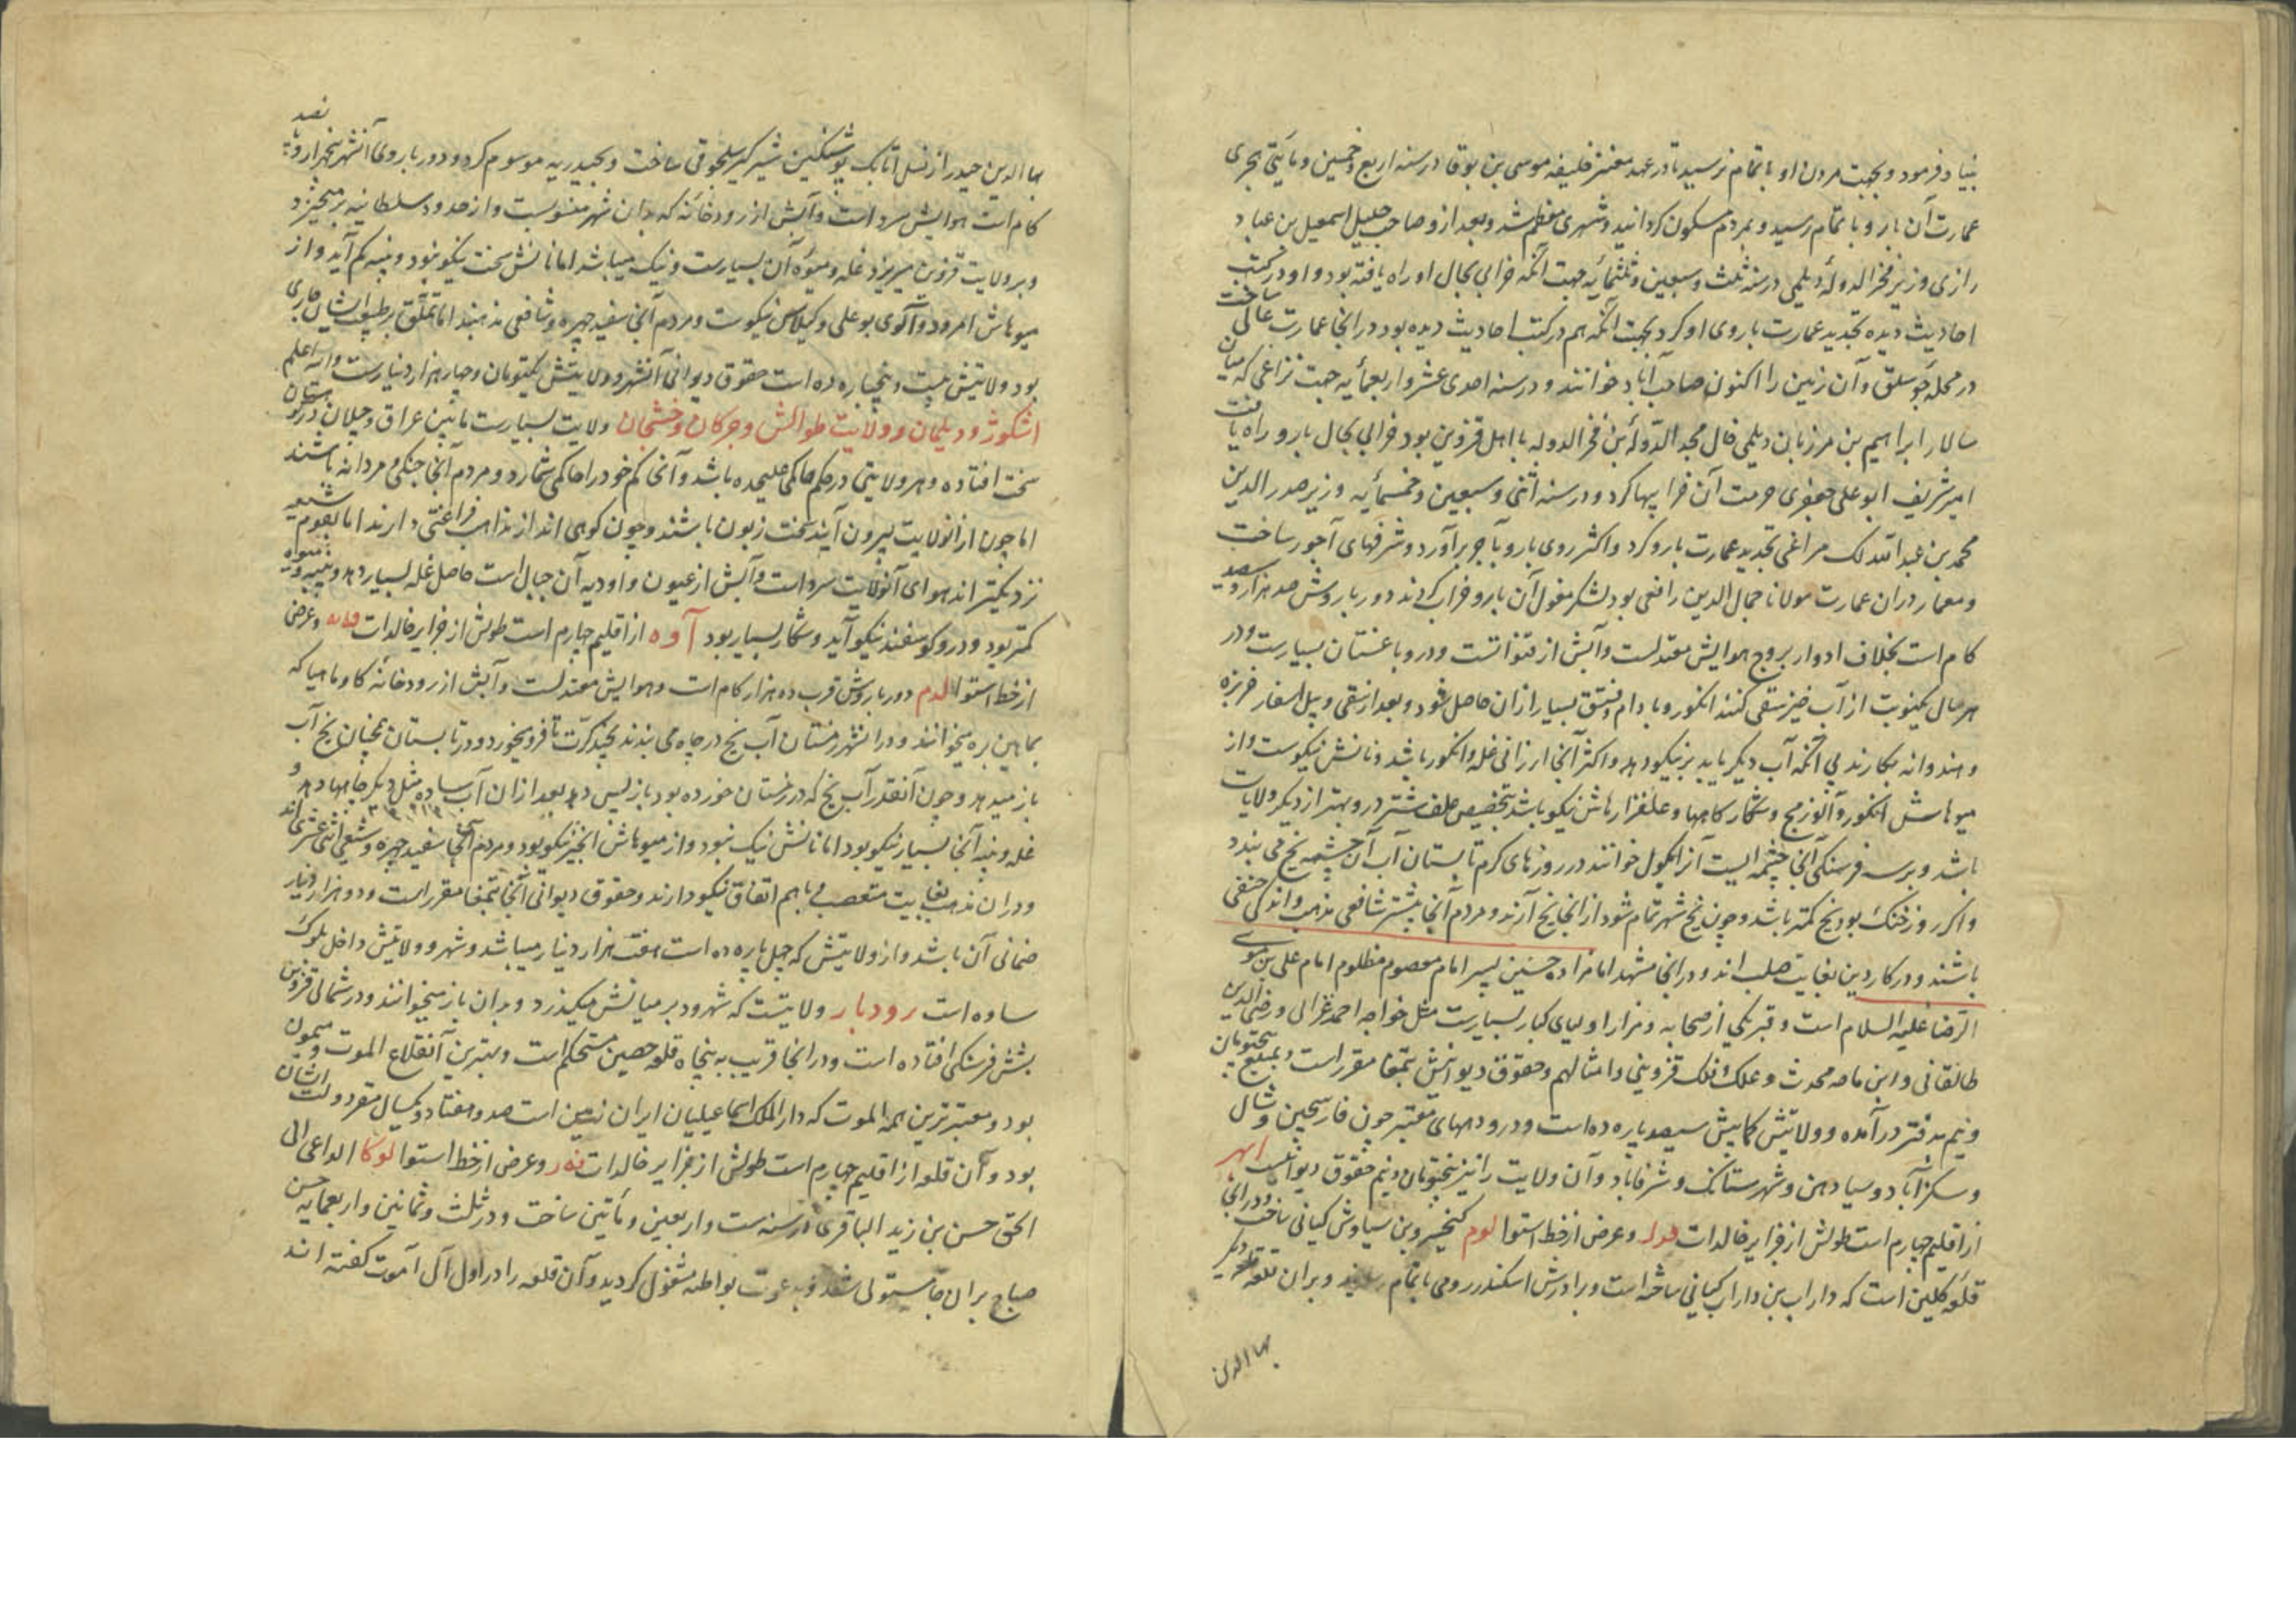 بنیاد فرمود و بجهت مردن او باتمام نرسید تا در عهد معتز خلیفه موسی بن بوقا در سنه اربع و خمسین و مایتی هجری
عمارت آن بارو باتمام رسید و بمردم مسکون کردانید و شهری معظم شد و بعد ازو صاحب جلیل اسمعیل بن عباد
رازی وزیر فخر الدولهٔ دیلمی در سنه ثلث و سبعین و ثلثمائه جهت آنکه خرابی بحال او راه یافته بود و او در کتب
احادیث دیده تجدید عمارت باروی او کرد بجهت آنکه هم در کتب احادیث دیده بود در انجا عمارت عالی ساخت
در محله جوسلق و آن زمین را اکنون صاحب آباد خوانند و در سنه احدی عشر و اربعمأیه جهت نزاعی که میان
سالار ابراهیم بن مرزبان دیلمی خال مجد الدولهٔ بن فخر الدوله با اهل قزوین بود خرابی بحال بارو راه یافت
امیر شریف ابو علی جعفری مرمت آن خرابیها کرد و در سنه اثنی و سبعین و خمسمأیه وزیر صدر الدین
محمد بن عبد الله لک مراغی تجدید عمارت بارو کرد و اکثر روی بارو بآجر برآورد و شرفهای آجور ساخت
و معمار دران عمارت مولانا جمال الدین رافعی بود لشکر مغول آن بارو خراب کردند دور باروش صد هزار و سیصد
کام است بخلاف ادوار بروج هوایش معتدلست و آبش از قنواتست و درو باغستان بسیارست و در
هر سال یکنوبت از آب خیز سقی کنند انکور و بادام و فستق بسیار ازان حاصل شود و بعد از سقی و پیل اسفار خربزه
و هندوانه بکارند بی آنکه آب دیکر یابد بر نیکو دهد و اکثر آنجا ارزانی غله و انکور باشد و نانش نیکوست و از
میوهاش انکور و آلوزمج و شکار کاهها و علفزارهاش نیکو باشد بتخصیص علف شتر درو بهتر از دیکر ولایات
باشد و برسه فرسنکی آنجا چشمه ایست آنرا انکول خوانند در روزهای کرم تابستان آب آن چشمه یخ می بندد
و اکر روز خنک بود یخ کمتر باشد و چون یخ شهر تمام شود از انجا یخ آرند و مردم آنجا بیشتر شافعی مذهب و اندکی حنفی
باشند و در کار دین بغایت صلب اند و در انجا مشهد امامزاده حسین پسر امام معصوم مظلوم امام علی بن موسی
الرضا علیه السلام است و قبر یکی از صحابه و مزار اولیای کبار بسیارست مثل خواجه احمد غزالی و رضی الدین
طالقانی و ابن ماجه محدث و علک و فلک قزوینی و امثالهم و حقوق دیوانیش بتمغا مقرر است و بمبلغ پنجتومان
و نیم بدفتر در آمده و ولایتش کمابیش سیصد پاره ده است و درو دههای معتبر چون فارسجین و شال
و سکزآباد و سیادهن و شهرستانک و شرفاباد و آن ولایت را نیز پنجتومان و نیم حقوق دیوانیست ابهر
از اقلیم چهارم است طولش از جزایر خالدات فدل و عرض از خط استوا لوم کیخسرو بن سیاوش کیانی ساخت و در انجا
قلعه کلین است که داراب بن داراب کیانی ساخته است و برادرش اسکندر رومی باتمام رسانید و بران قلعه قلعه دیکر
بها الدین
بها الدین حیدر از نسل اتابک بوشتکین شیرکیر سلجوقی ساخت و بحیدریه موسوم کرد و دور باروی آنشهر پنجهزار و پانصد
کام است هوایش سرد است و آبش از رودخانه که بدان شهر منسوبست و از حدود سلطانیه برمیخیزد
و بر ولایت قزوین میریزد غله و میوه آن بسیارست و نیک میباشد اما نانش سخت نیکو نبود و پنبه کم آید و از
میوهاش امرود و آلوی بوعلی و کیلاس نیکوست و مردم آنجا سفید چهره و شافعی مذهبند اما تملق بر طبیعت ایشان طاری
بود ولایتش بیست و پنجپاره ده است حقوق دیوانی آنشهر و ولایتش یکتومان و چهار هزار دینارست والله اعلم
اشکور و دیلمان و ولایت طوالش و جرکان و خشجان ولایت بسیارست مابین عراق و جیلان در کوهستان
سخت افتاده و هر ولایتی در حکم حاکمی علیحده باشد و آنجا کم خود را حاکمی شمارد و مردم آنجا جنکی و مردانه باشند
اما چون از انولایت بیرون آیند سخت زبون باشند و چون کوهی اند از مذاهب فراغتی دارند اما بقوم شیعه
نزدیکتر اند هوای آنولایت سرد است و آبش از عیون و اودیه آن جبال است حاصل غله بسیار دهد و پنبه و میوه
کمتر بود و درو کوسفند نیکو آید و شکار بسیار بود آوه از اقلیم چهارم است طولش از جزایر خالدات فه و عرض
از خط استوا لدم دور باروش قرب ده هزار کام است و هوایش معتدلست و آبش از رودخانه کاوماهیا که
بماهین بره میخوانند و در انشهر زمستان آب یخ در چاه می بندند بچند کرت تا فرو میخورد و در تابستان همچنان یخ آب
باز میدهد و چون آنقدر آب یخ که در زمستان خورده بود باز پس دهد بعد ازان آب ساده مثل دیکر چاهها دهد و
غله و پنبه آنجا بسیار نیکو بود اما نانش نیک نبود و از میوهاش انجیر نیکو بود و مردم آنجا سفید چهره و شیعی اثنی عشری اند
و دران مذهب بغایت متعصب و باهم اتفاق نیکو دارند و حقوق دیوانی آنجا بتمغا مقرر است و ده هزار دینار
ضمانی آن باشد و از ولایتش که چهل پاره ده است هفت هزار دینار میباشد و شهر و ولایتش داخل بلوک
ساوه است رودبار ولایتیست که شهرود بر میانش میکذرد و بدان باز میخوانند و در شمالی قزوین
بشش فرسنکی افتاده است و در انجا قریب به پنجاه قلعه حصین مستحکم است و بهترین آنقلاع الموت و میمون
بود و معتبرترین همه الموت که دار الملک اسماعیلیان ایران زمین است صد و هفتاد و یکسال مقر دولت ایشان
بود و آن قلعه از اقلیم چهارم است طولش از جزایر خالدات و عرض از خط استوا الداعی الی
الحق حسن بن زید الباقری در سنه ست و اربعین و مأتین ساخت و در ثلث و ثمانین و اربعمایه حسن
صباح بران مستولی شد و بدعوت بواطنه مشغول کردید و آن قلعه را در اول آل آموت کفته اند